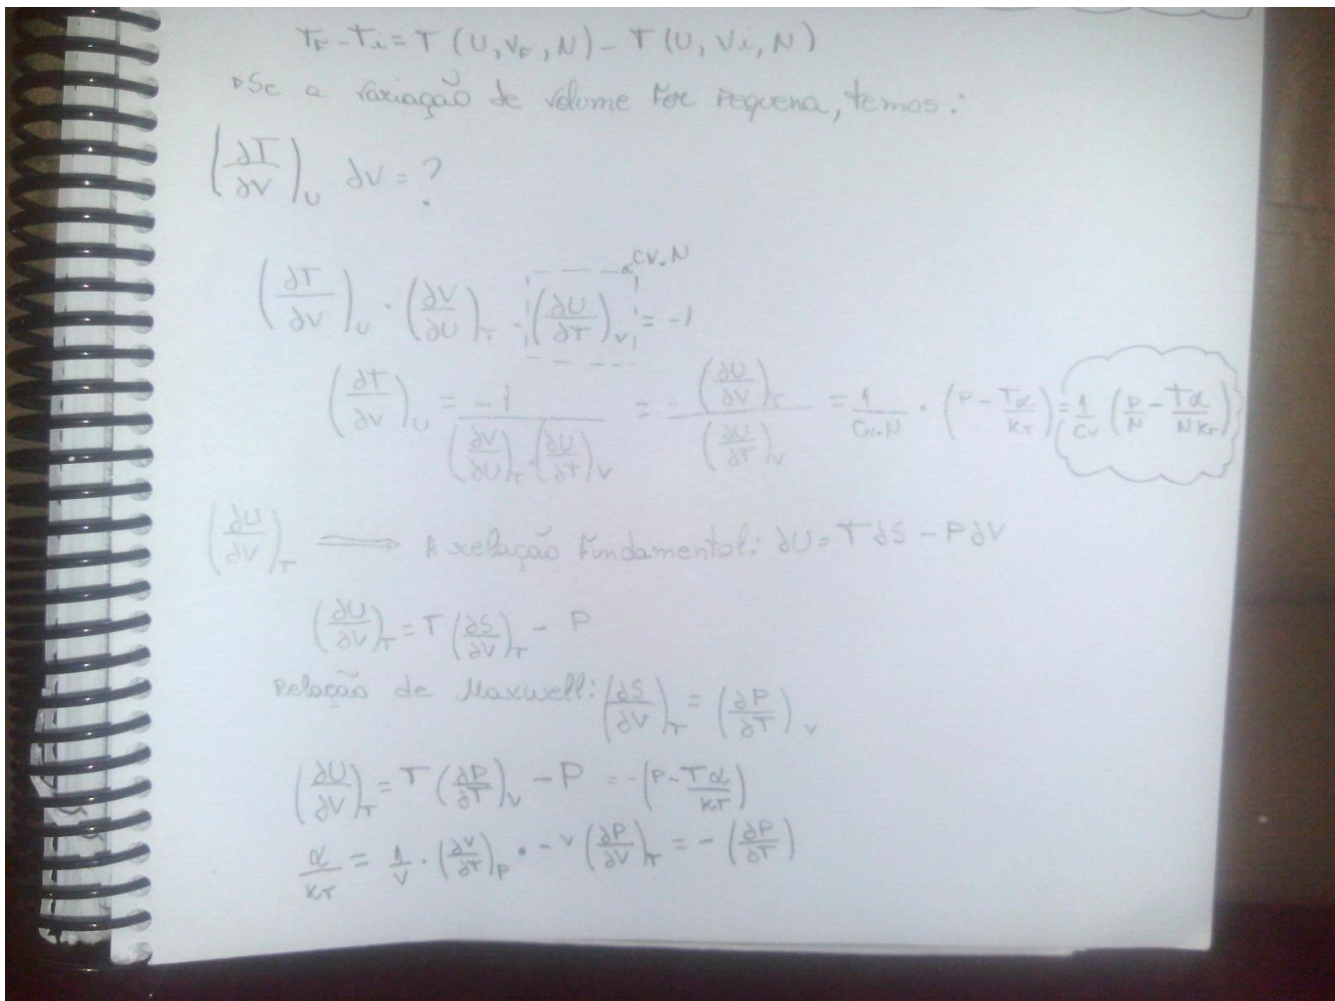 T_F - T_i = T (U, V_F, N) - T (U, V_i, N)
▹Se a variação de volume for pequena, temos:
(∂T/∂V)_U ∂V = ?
CV.N
(∂T/∂V)_U · (∂V/∂U)_T · (∂U/∂T)_V = -1
(∂T/∂V)_U = -1 / (∂V/∂U)_T · (∂U/∂T)_V = - (∂U/∂V)_T / (∂U/∂T)_V = 1/Cv.N · (P - Tα/κ_T) = 1/Cv (P/N - Tα/Nκ_T)
(∂U/∂V)_T ⟹ A relação Fundamental: ∂U = T∂S - P∂V
(∂U/∂V)_T = T (∂S/∂V)_T - P
Relação de Maxwell: (∂S/∂V)_T = (∂P/∂T)_V
(∂U/∂V)_T = T (∂P/∂T)_V - P = -(P - Tα/κ_T)
α/κ_T = 1/V · (∂V/∂T)_P · -V (∂P/∂V)_T = - (∂P/∂T)